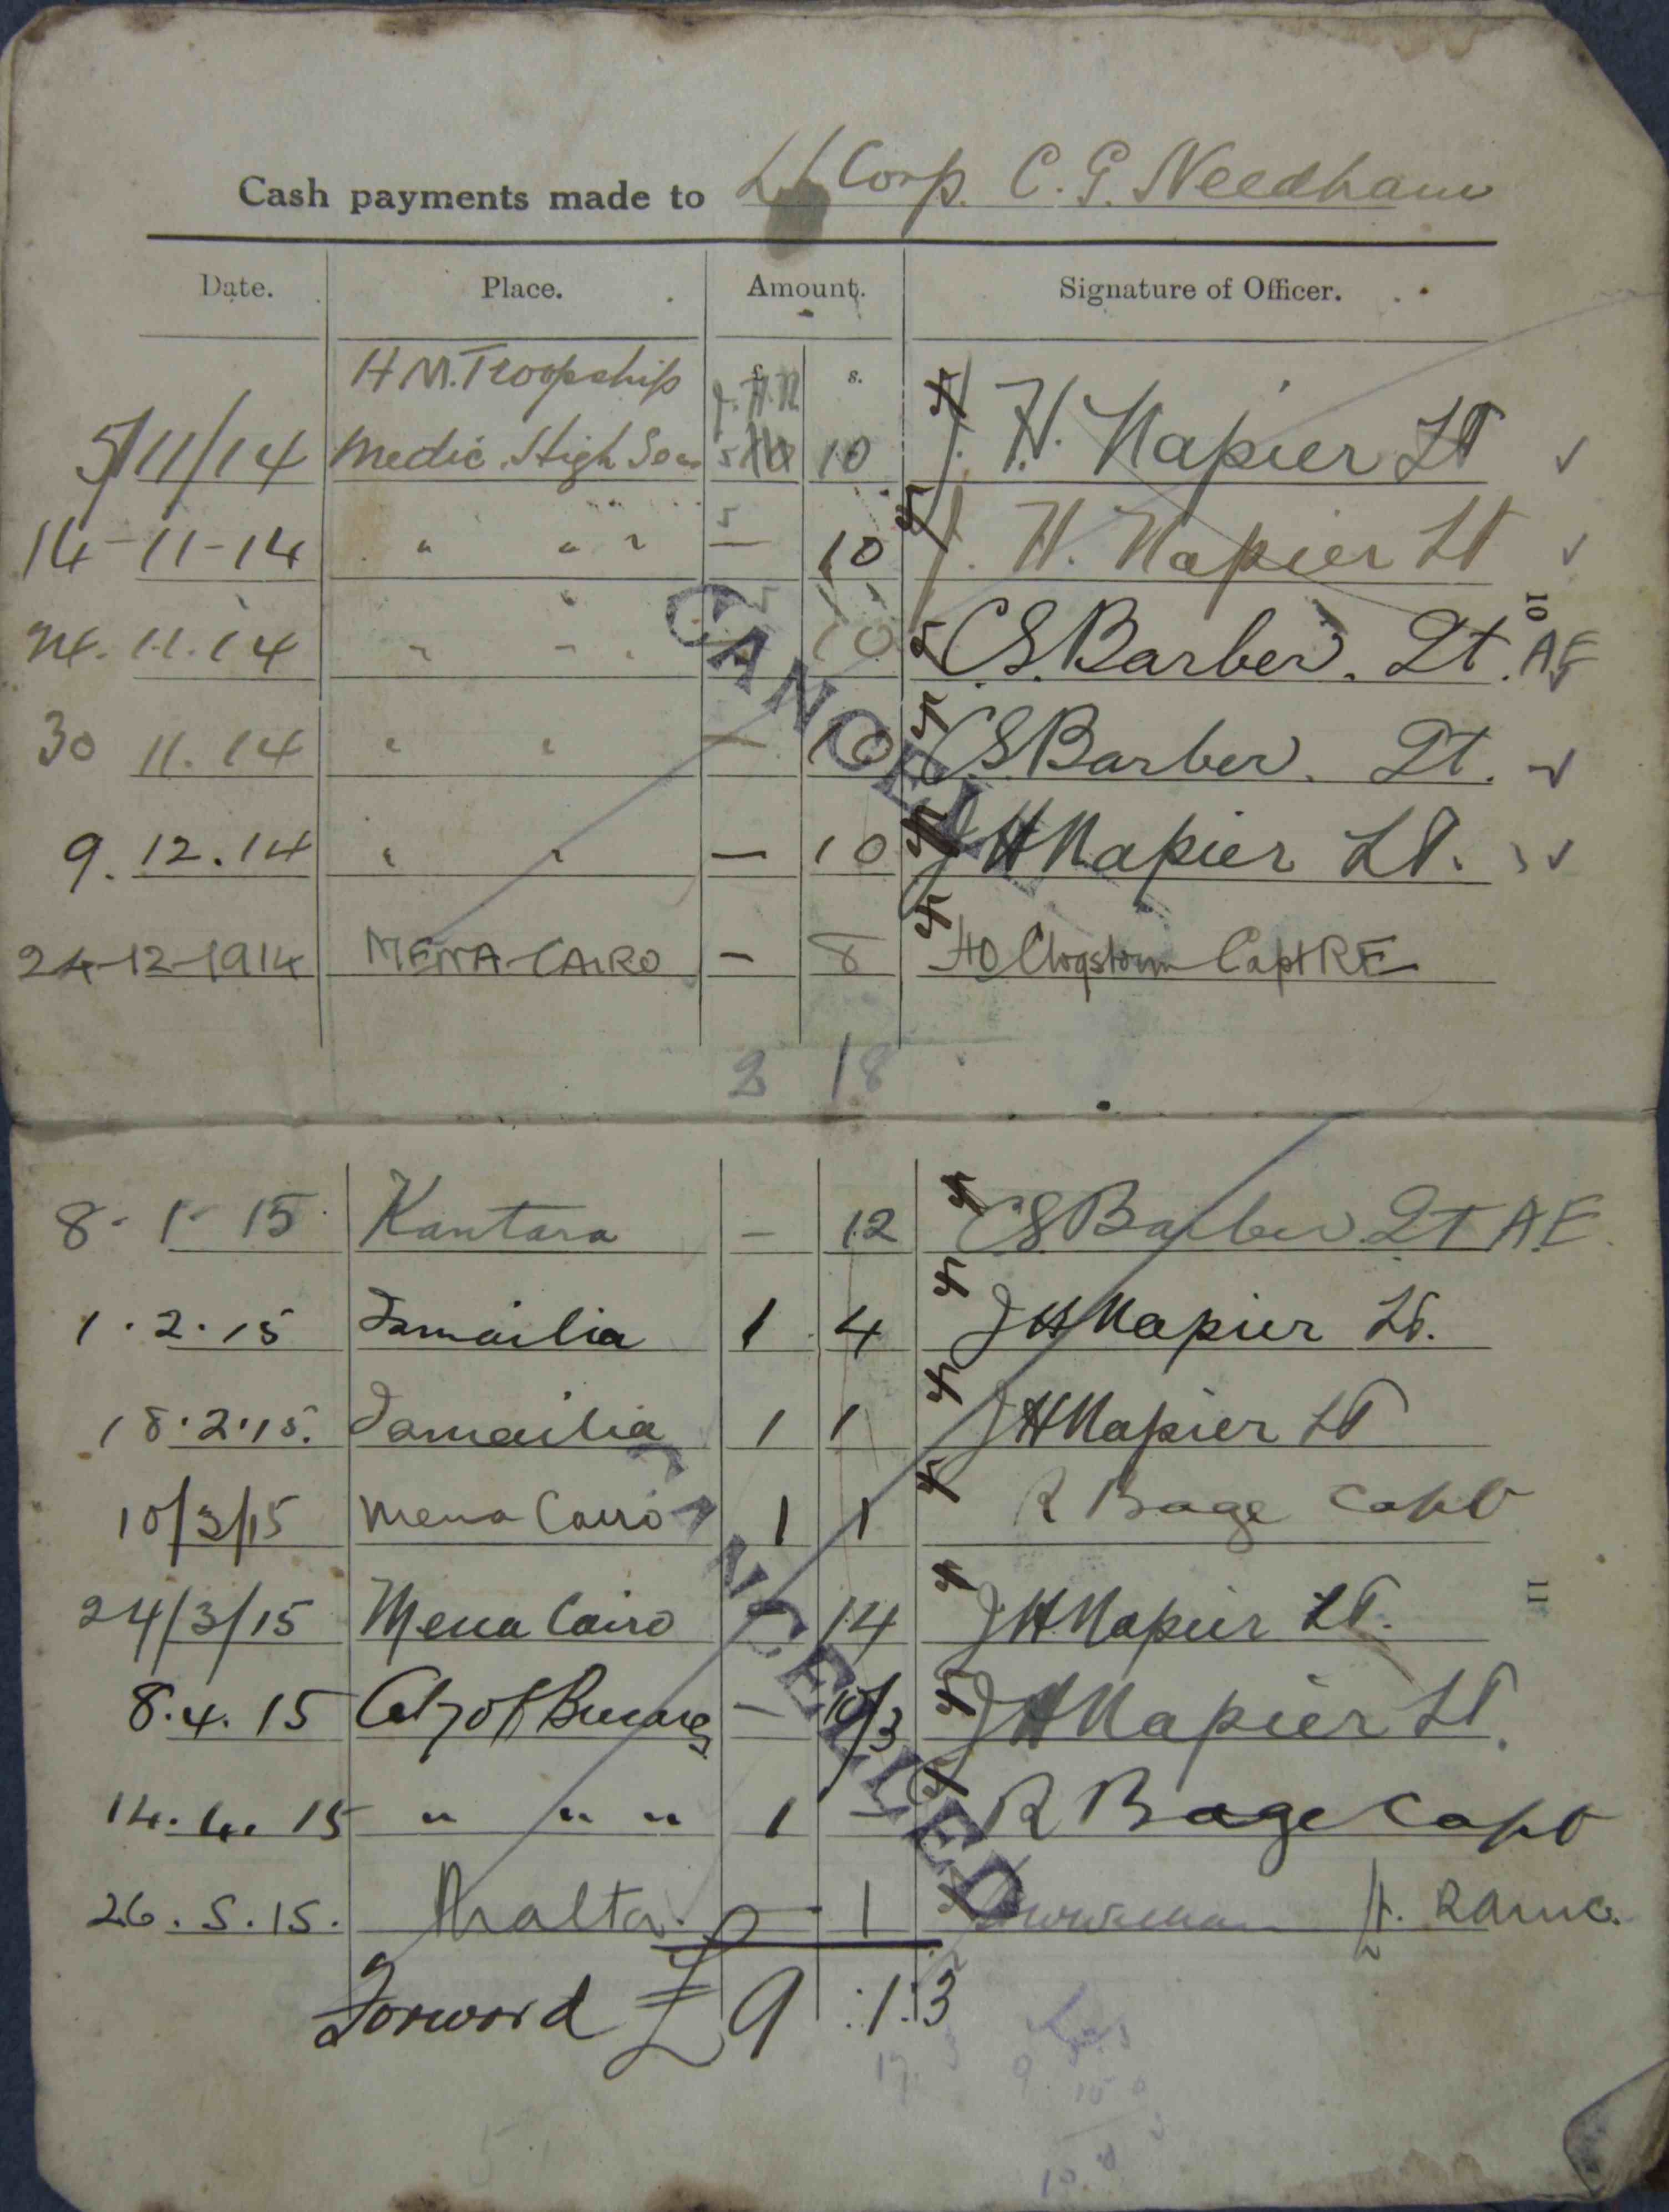 Cash payments made to L/Corp. C. G. Needham
Date. Place. Amount. Signature of Officer.
H.M. Troopship £ s.
J.H.N.
5/11/14 Medic. High Seas 10 J. H. Napier Lt
14-11-14 " " " — 10 J. H. Napier Lt
10
24.11.14 " " 10 C S Barber. Lt. AE
30 11.14 " " — 10 C S Barber. Lt.
9.12.14 " " — 10 J H Napier Lt.
24-12-1914 MENA-CAIRO - 8 Clogstoun Capt RE
2 18
CANCELL
8-1-15 Kantara - 12 C S Barber Lt A.E.
1.2.15 Ismailia 1 4 J H Napier Lt.
18.2.15. Ismailia 1 1 J H Napier Lt
10/3/15 Mena Cairo 1 1 R Bage Capt
24/3/15 Mena Cairo - 14 J H Napier Lt.
11
8.4.15 City of Benares — 10/3 J H Napier Lt.
14.4.15 " " " 1 - R Bage Capt
26.5.15. Malta. — 1 Lt. RAMC.
CANCELLED
Forward £9:1:3